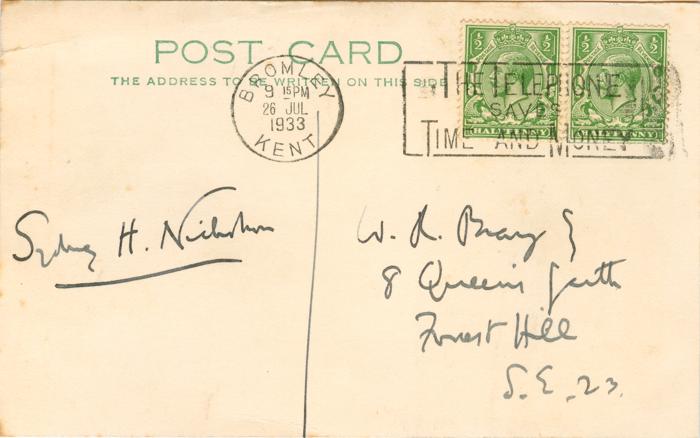 POST CARD
THE ADDRESS TO BE WRITTEN ON THIS SIDE
BROMLEY
9 15PM
26 JUL
1933
KENT
THE TELEPHONE
SAVES
TIME AND MONEY
½ ½
½ ½
HALFPENNY
Sydney H. Nicholson
W. R. Bray Esq
8 Queens Garth
Forest Hill
S.E. 23.